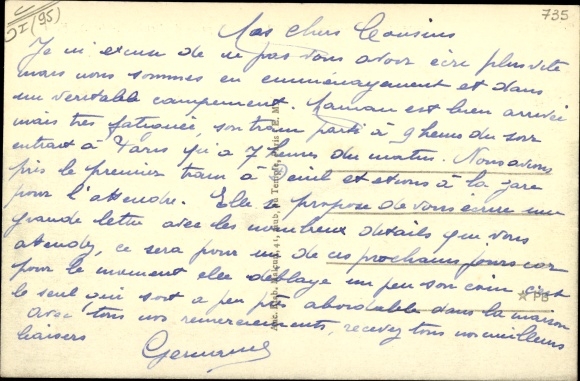 DI (95)
735
Mes chers Cousins
Je m'excuse de ne pas vous avoir écrit plus vite
mais nous sommes en emménagement et dans
un veritable campement. Maman est bien arrivée
mais très fatiguée, son train parti à 9 heures du soir
entrait à Paris qu'a 7 heures du matin. Nous avons
pris le premier train à et etions à la gare
pour l'attendre. Elle se propose de vous ecrire une
grande lettre avec les nombreux details que vous
attendez, ce sera pour un de ces prochains jours car
pour le moment elle déblaye un peu son coin c'est
le seul qui soit a peu près abordable dans la maison
Avec tous nos remerciements, recevez tous nos meilleurs
baisers
Germaine